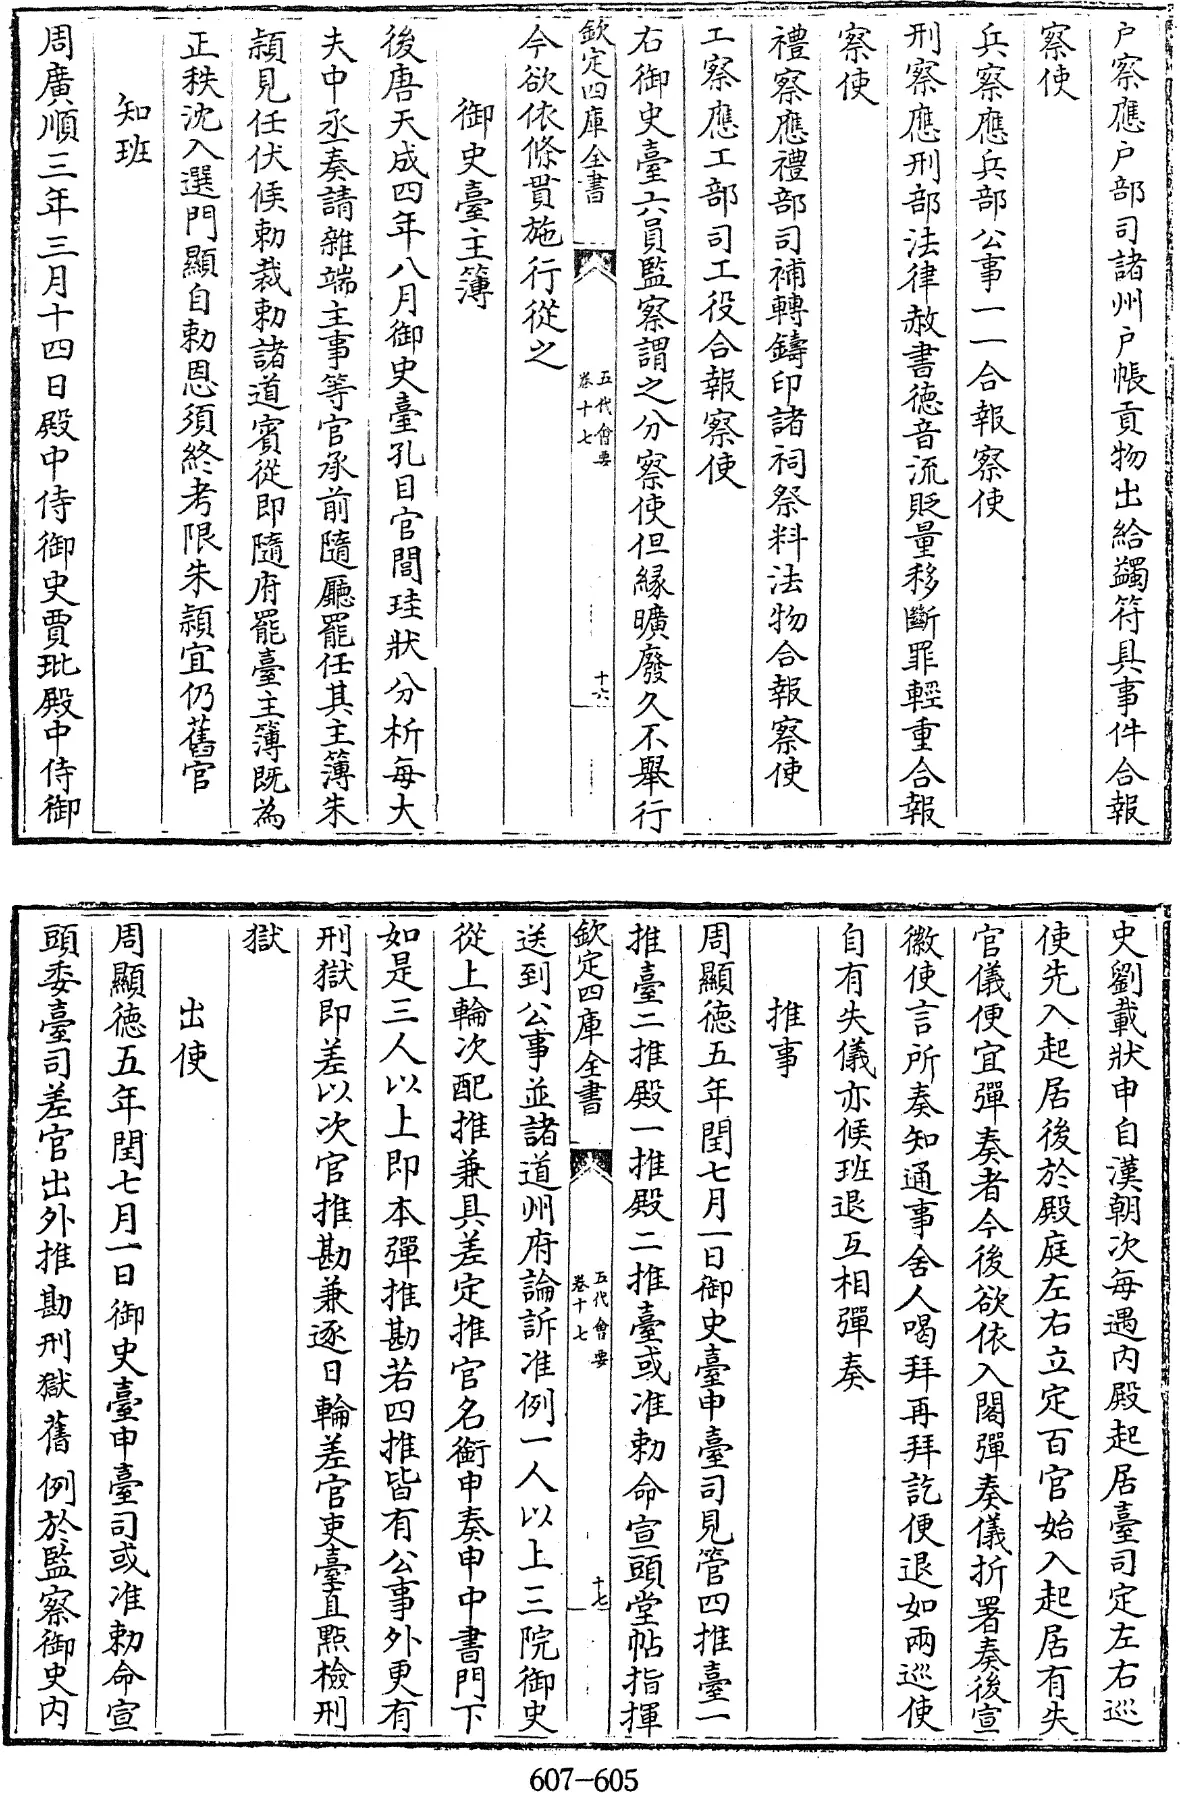 户察應户部司諸州户帳貢物出給蠲符具事件合報
察使
兵察應兵部公事一一合報察使
刑察應刑部法律赦書德音流貶量移斷罪輕重合報
察使
禮察應禮部司補轉鑄印諸祠祭料法物合報察使
工察應工部司工役合報察使
右御史臺六員監察謂之分察使但緣曠廢久不舉行
欽定四庫全書
五代會要
卷十七
十六
今欲依條貫施行從之
御史臺主簿
後唐天成四年八月御史臺孔目官閻珪狀分析每大
夫中丞奏請雜端主事等官承前隨廳罷任其主簿朱
頴見任伏候勅裁勅諸道賓從即隨府罷臺主簿既為
正秩沈入選門顯自勅恩須終考限朱頴宜仍舊官
知班
周廣順三年三月十四日殿中侍御史賈玭殿中侍御
史劉載狀申自漢朝次每遇内殿起居臺司定左右巡
使先入起居後於殿庭左右立定百官始入起居有失
官儀便宜彈奏者今後欲依入閣彈奏儀折署奏後宣
徽使言所奏知通事舍人喝拜再拜訖便退如兩巡使
自有失儀亦候班退互相彈奏
推事
周顯德五年閏七月一日御史臺申臺司見管四推臺一
推臺二推殿一推殿二推臺或准勅命宣頭堂帖指揮
欽定四庫全書
五代會要
卷十七
十七
送到公事並諸道州府論訴准例一人以上三院御史
從上輪次配推兼具差定推官名銜申奏申中書門下
如是三人以上即本彈推勘若四推皆有公事外更有
刑獄即差以次官推勘兼逐日輪差官吏臺直點檢刑
獄
出使
周顯德五年閏七月一日御史臺申臺司或准勅命宣
頭委臺司差官出外推勘刑獄舊例於監察御史内
607-605